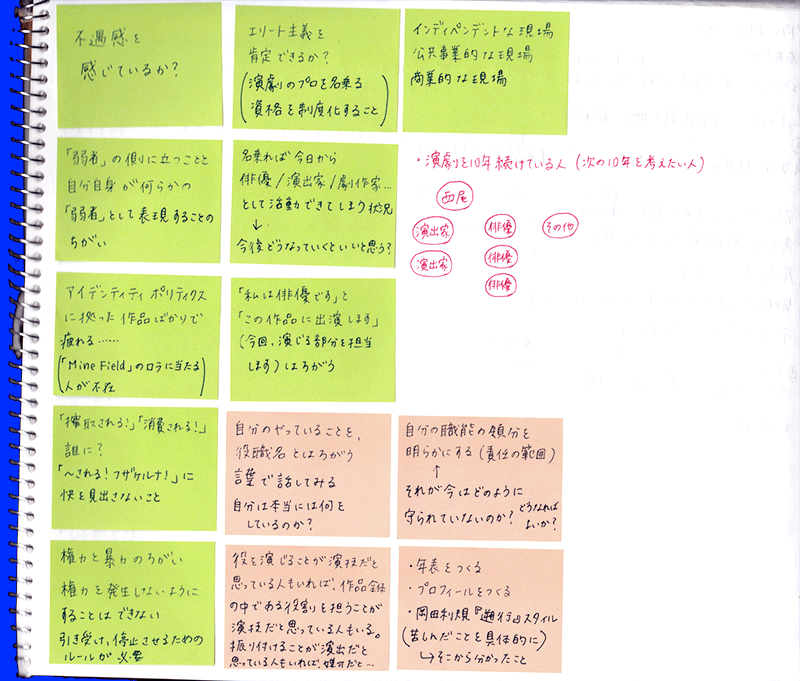 不遇感を
感じているか?
エリート主義を
肯定できるか?
(演劇のプロを名乗る
資格を制度化すること)
インディペンデントな現場
公共事業的な現場
商業的な現場
「弱者」の側に立つことと
自分自身が何らかの
「弱者」として表現することの
ちがい
名乗れば今日から
俳優/演出家/劇作家…
として活動できてしまう状況
↓
今後どうなっていくといいと思う?
・演劇を10年続けている人(次の10年を考えたい人)
西尾
演出家 俳優 その他
演出家 俳優
俳優
アイデンティティ ポリティクス
に拠った作品ばかりで
疲れる……
(「Mine Field」のロラに当たる
人が不在)
「私は俳優です」と
「この作品に出演します」
(今回、演じる部分を担当
します)はちがう
「搾取される!」「消費される!」
誰に?
「〜される!フザケルナ!」に
快を見出さないこと
自分のやっていることを、
役職名とはちがう
言葉で話してみる
自分は本当には何を
しているのか?
自分の職能の領分を
明らかにする(責任の範囲)
↑
それが今はどのように
守られていないのか? どうなれば
よいか?
権力と暴力のちがい
権力を発生しないように
することはできない
引き受け、停止させるための
ルールが必要
役を演じることが演技だと
思っている人もいれば、作品全体
の中である役割りを担うことが
演技だと思っている人もいる。
振り付けることが演出だと
思っている人もいれば、媒介だと…
・年表をつくる
・プロフィールをつくる
・岡田利規『遡行』スタイル
(苦しんだことを具体的に)
↳そこから分かったこと